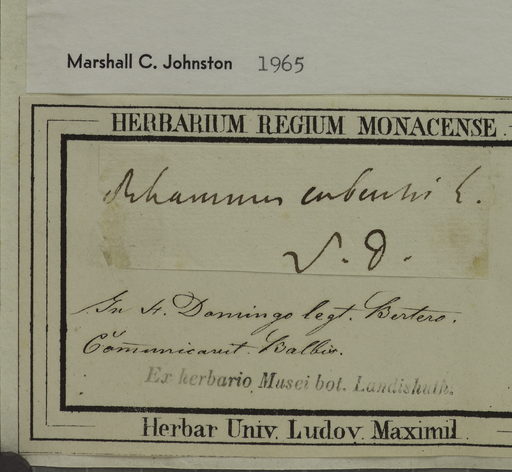 Marshall C. Johnston 1965
HERBARIUM REGIUM MONACENSE.
Rhamnus cubensis L.
S. D.
In St. Domingo legt. Bertero.
Communicavit. Balbis.
Ex herbario Musei bot. Landishuth.
Herbar Univ. Ludov. Maximil.